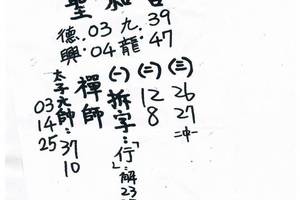 聖
德興：03.04
九龍：39.47
太子元帥：37
10
03
14
25
禪師
(一)拆字：「行」：解23
(二)
12
8
(三)
26
27
二中一